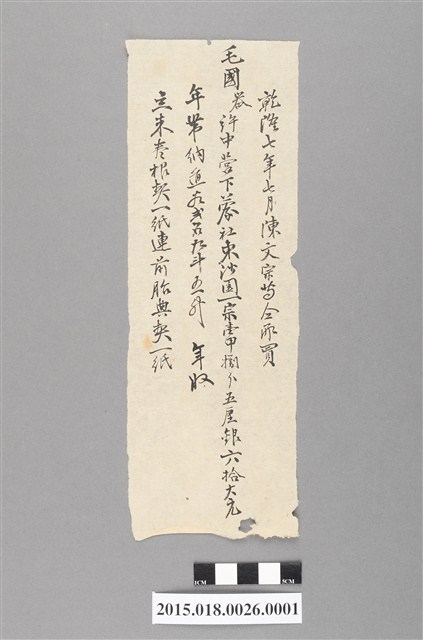 乾隆七年七月陳文宗等仝承買
毛國 叅許中營下蓼社東沙園一宗壹甲捌分五厘銀六拾大元
年帶納 斗五升 年收
立來 根契一紙連前胎典契一紙
1CM 5CM
2015.018.0026.0001